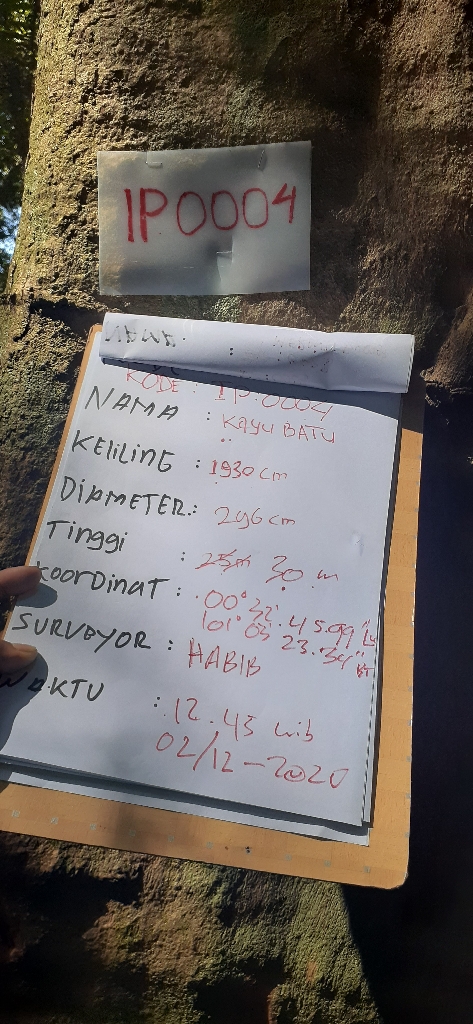 IP0004
KODE : IP.0004
NAMA : KAYU BATU
KELILING : 1930 cm
DIAMETER : 296 cm
Tinggi : 25m 30 m
KoorDinAt : 00° 32' 45.09" LS
101° 03' 23.34" BT
SURVEYOR : HABIB
WAKTU : 12.45 wib
02/12-2020